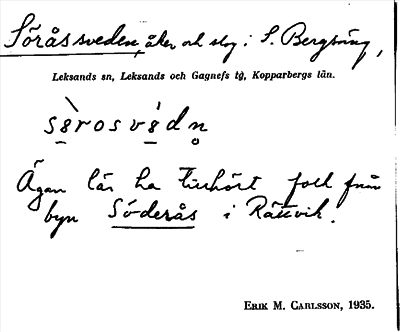 Söråssveden, åker och slog i S. Bergsäng,
Leksands sn, Leksands och Gagnefs tg, Kopparbergs län.
sèrosvèdn̥
Ägan lär ha tillhört folk från
byn Söderås i Rättvik.
ERIK M. CARLSSON, 1935.